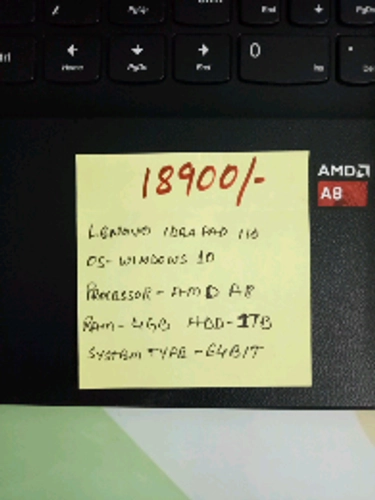 PgUp
End
Ins
Home
PgDn
End
0
Ins
AMD
A8
18900/-
LENOVO IDEAPAD 110
OS- WINDOWS 10
PROCESSOR - AMD A8
RAM- 4GB HDD- 1TB
SYSTEM TYPE - 64BIT